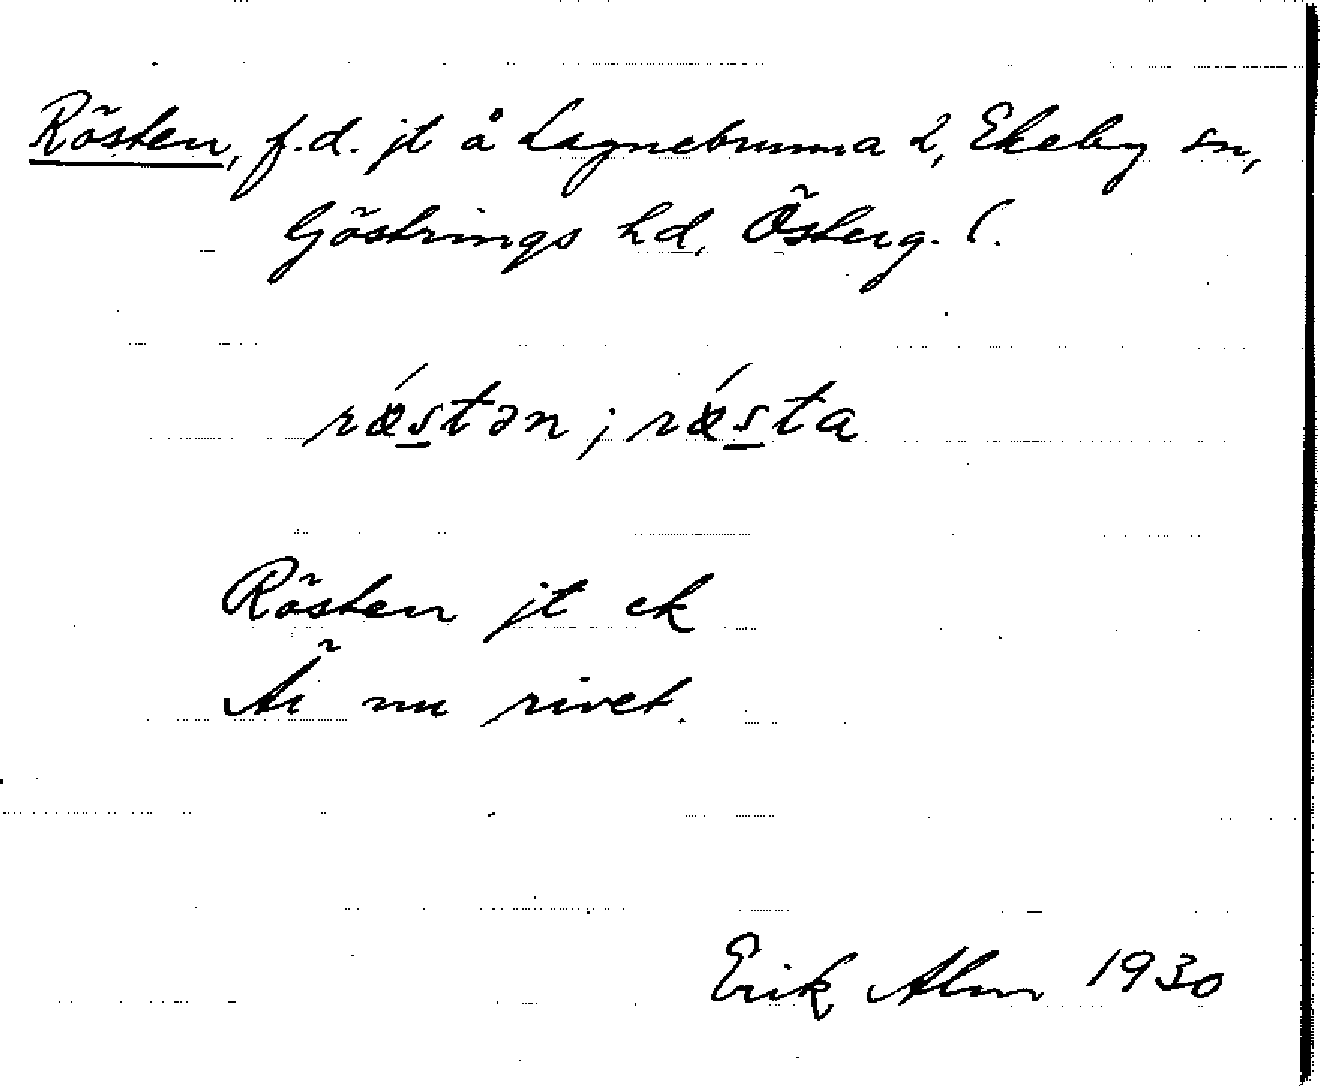 Rösten, f.d. jt å Lagnebrunna 2, Ekeby sn,
Göstrings hd, Österg. l.
rǿstən; rǿsta
Rösten jt ek
Är nu rivet.
Erik Alm 1930